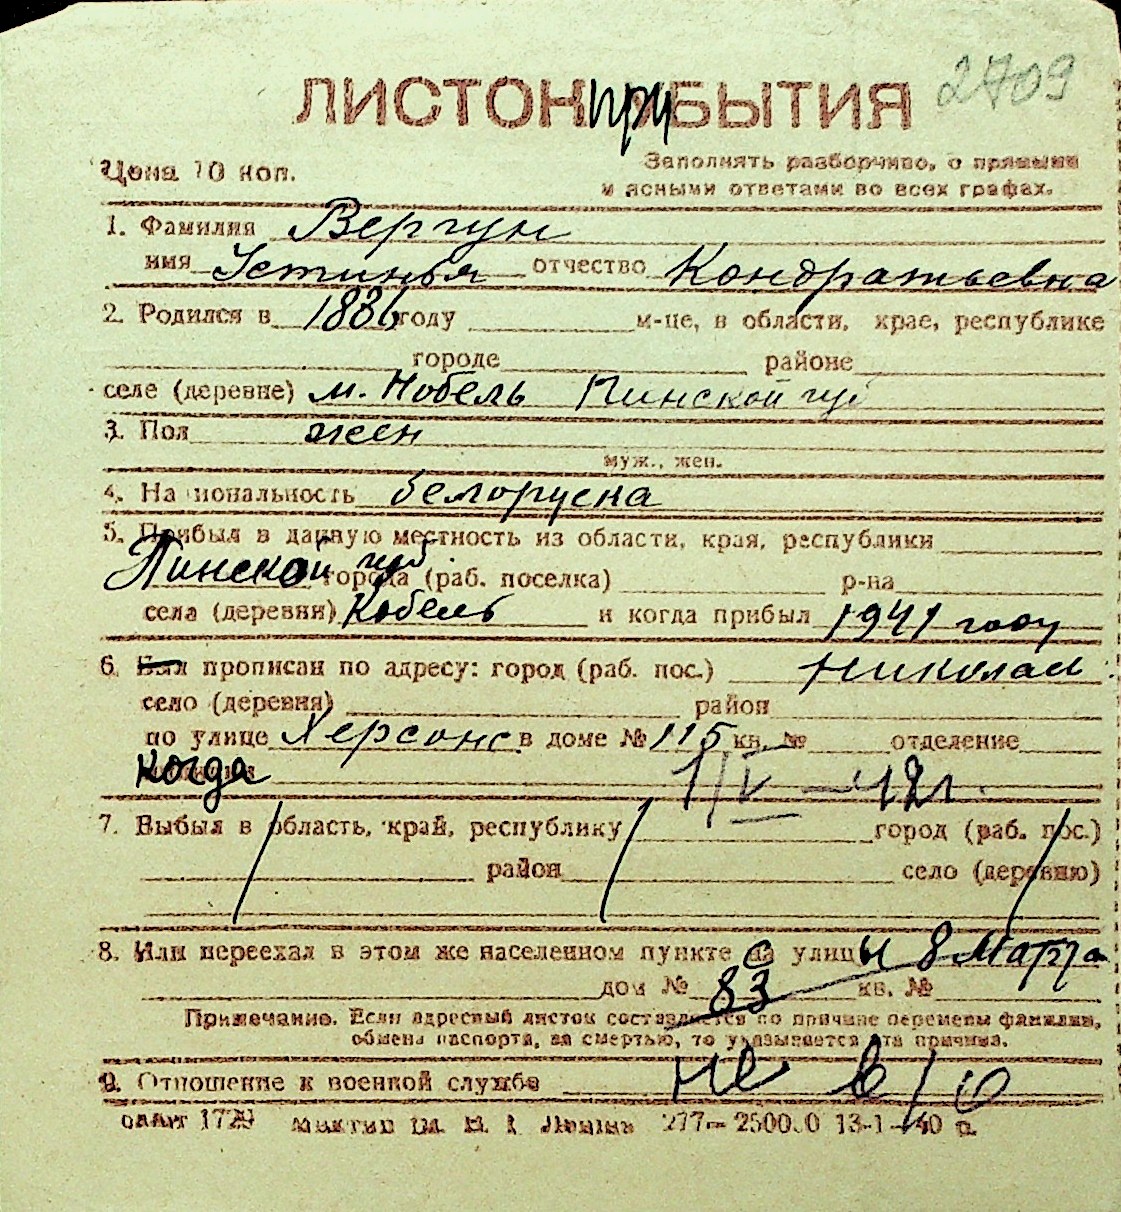 2709
ЛИСТОК при БЫТИЯ
Цена 10 коп.
Заполнять разборчиво, с прямыми
и ясными ответами во всех графах.
1. Фамилия Вергун
имя Устинья отчество Кондратьевна
2. Родился в 1886 году м-це, в области, крае, республике
городе районе
селе (деревне) м. Нобель Пинской губ
3. Пол жен
муж., жен.
4. Национальность белоруска
5. Прибыл в данную местность из области, края, республики
Пинской губ. города (раб. поселка) р-на
села (деревни) Кобель и когда прибыл 1941 году
6. Был прописан по адресу: город (раб. пос.) Николаи
село (деревня) район
по улице Херсонс в доме № 115 кв. № отделение
когда 1/IV - 42 г.
7. Выбыл в область, край, республику город (раб. пос.)
район село (деревню)
8. Или переехал в этом же населенном пункте с улицы 8 Марта
дом № 83 кв. №
Примечание. Если адресный листок составляется по причине перемены фамилии,
обмена паспорта, за смертью, то указывается эта причина.
9. Отношение к военной службе не в/о
1729 277— 250000 13-1-40 г.